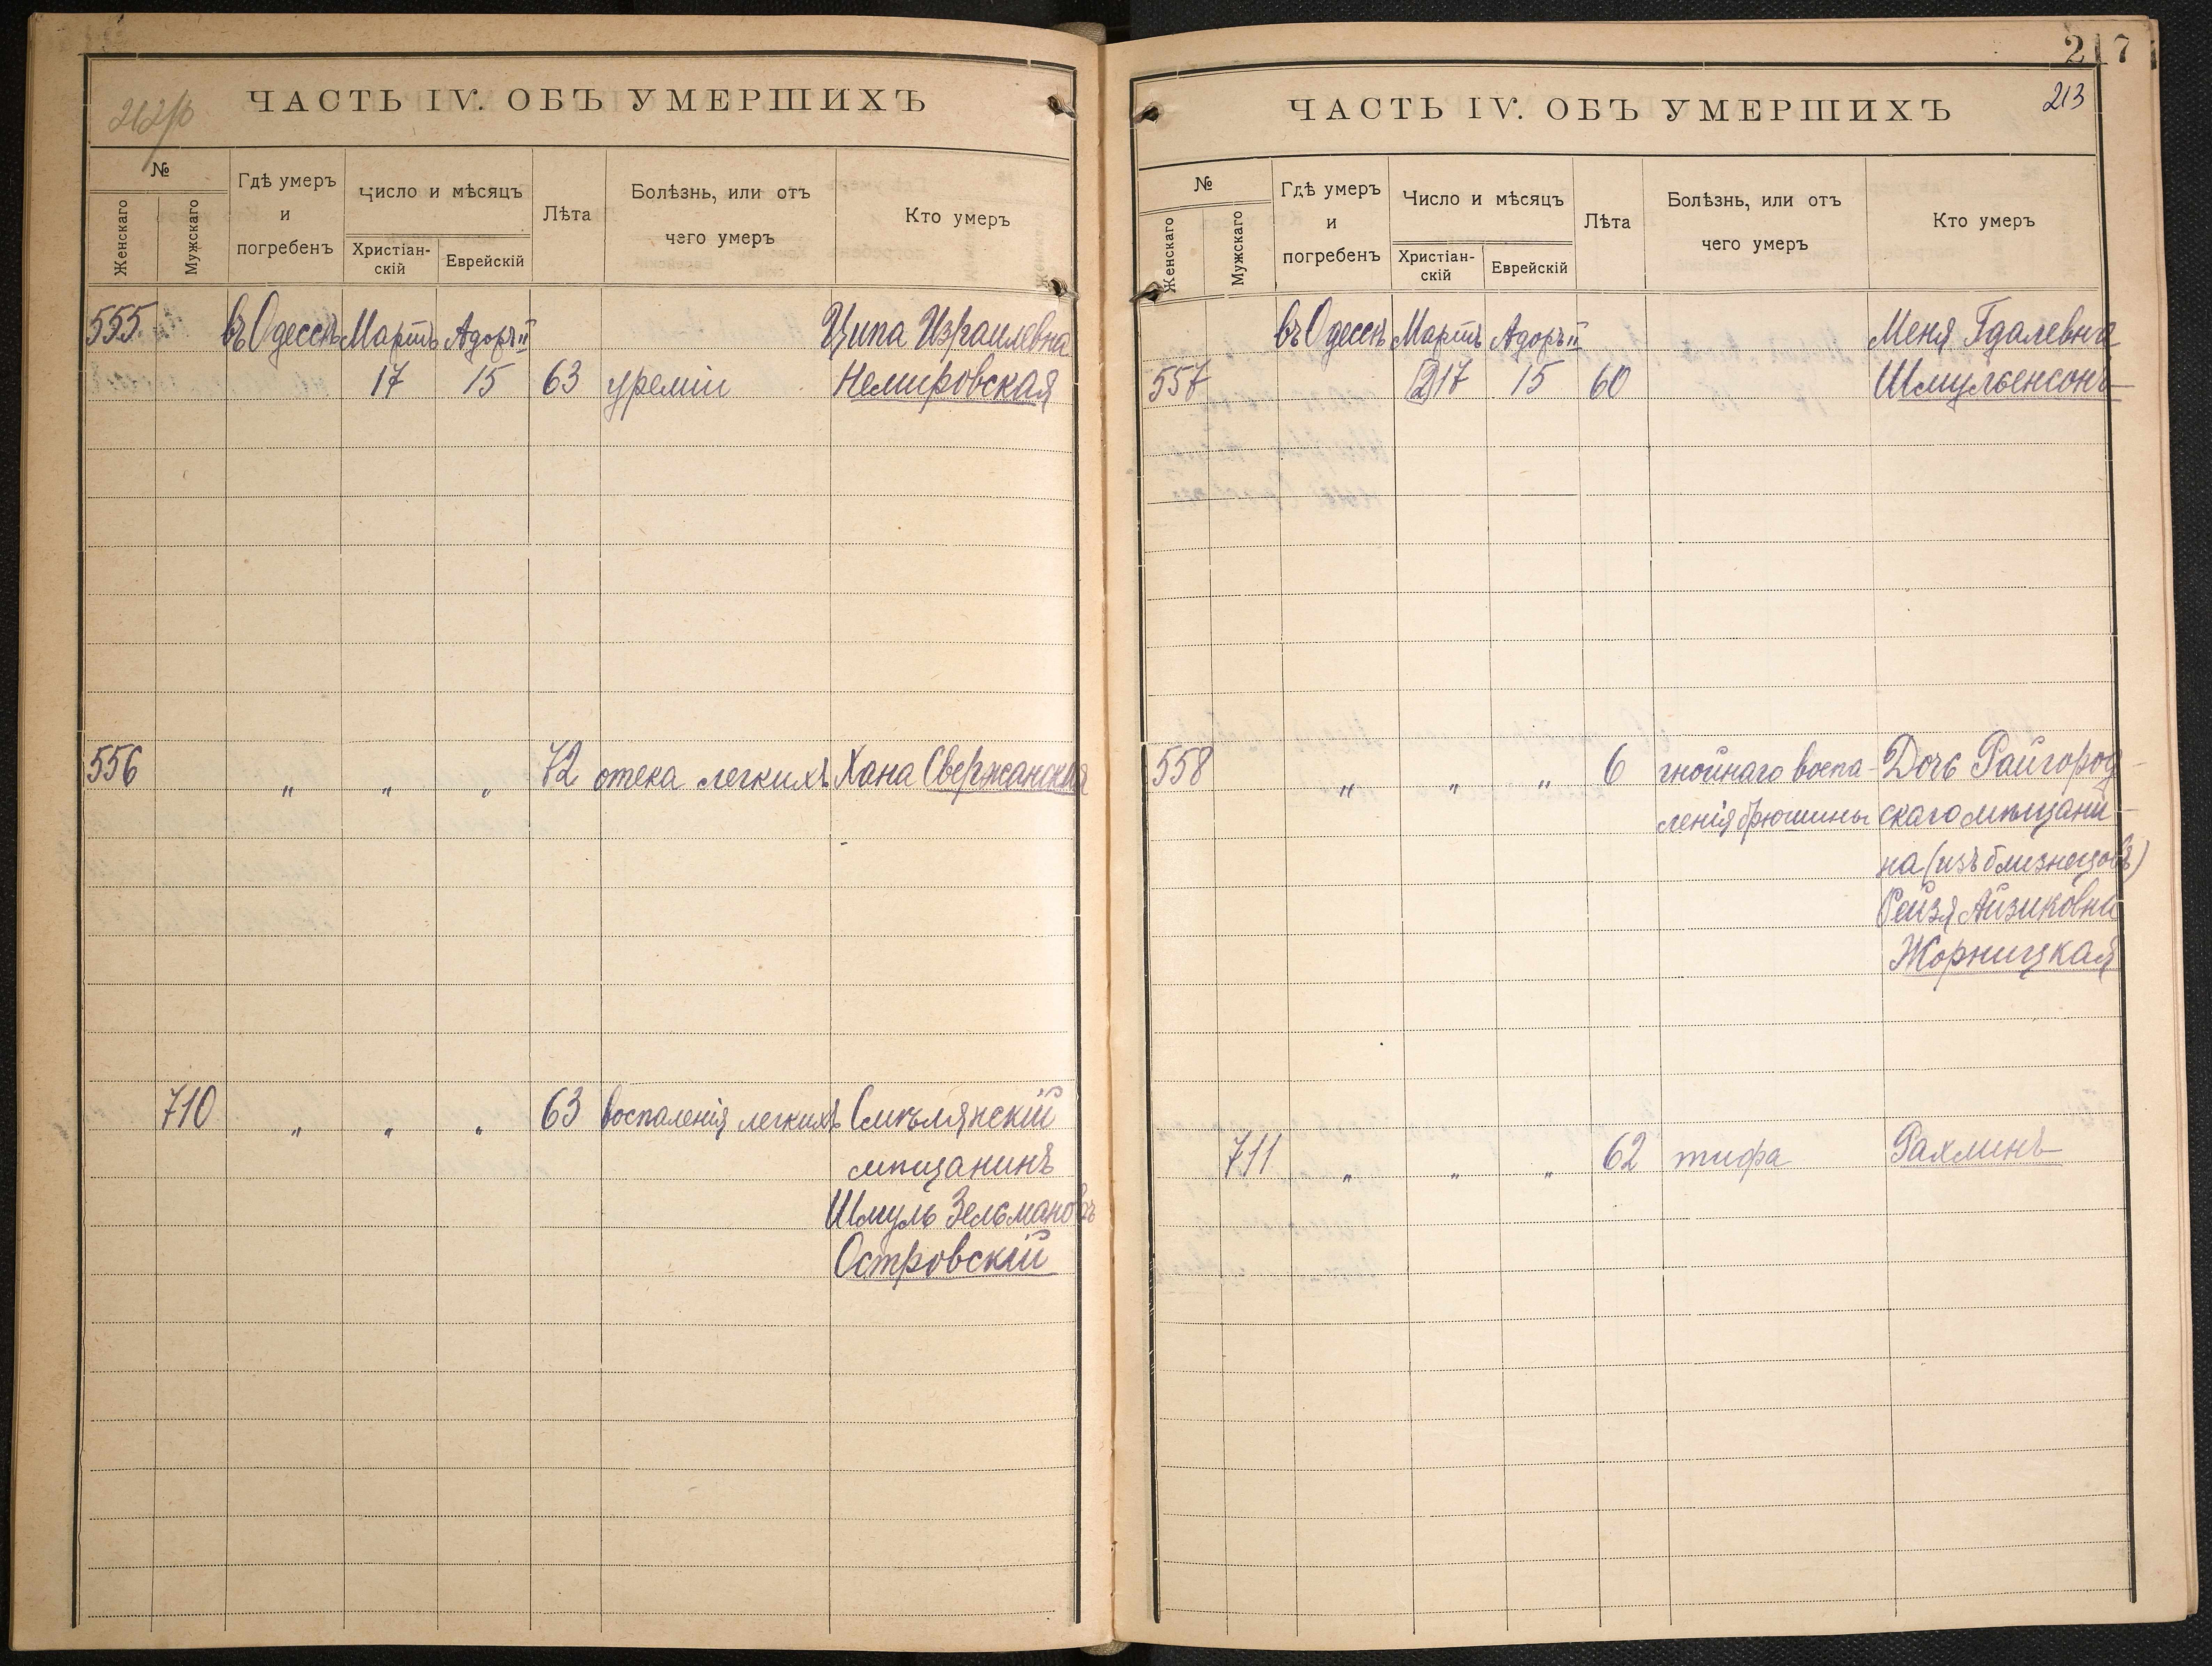 212/б
ЧАСТЬ IV. ОБЪ УМЕРШИХЪ
№
Женскаго
Мужскаго
Гдѣ умеръ
и
погребенъ
Число и мѣсяцъ
Христіан-
скій
Еврейскій
Лѣта
Болѣзнь, или отъ
чего умеръ
Кто умеръ
555 въ Одессѣ Мартъ Адоръ II Ципа Израилевна
17 15 63 уреміи Немировская
556 " " " 72 отека легкихъ Хана Свержанская
710 " " " 63 воспаленія легкихъ Смѣлянскій
мѣщанинъ
Шмуль Зельмановъ
Островскій
217
213
ЧАСТЬ IV. ОБЪ УМЕРШИХЪ
№
Женскаго
Мужскаго
Гдѣ умеръ
и
погребенъ
Число и мѣсяцъ
Христіан-
скій
Еврейскій
Лѣта
Болѣзнь, или отъ
чего умеръ
Кто умеръ
въ Одессѣ Мартъ Адоръ II Меня Гдалевна
557 (2)17 15 60 Шмульенсонъ
558 " " " 6 гнойнаго воспа- Дочь Райгород-
ленія брюшины скаго мѣщани-
на (изъ близнецовъ)
Рейзя Айзиковна
Жорницкая
711 " " " 62 тифа Рахминъ